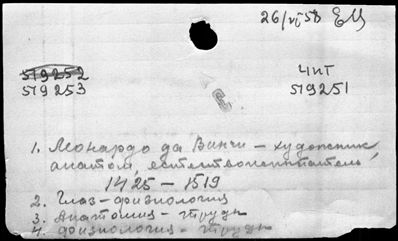 26/VI 58 ЕЦ
519252
ЧиТ
519253
519251
1. Леонардо да Винчи – художник,
анатом, естествоиспытатель,
1425 – 1519
2. Глаз – физиология
3. Анатомия – труды
4. физиология – труды